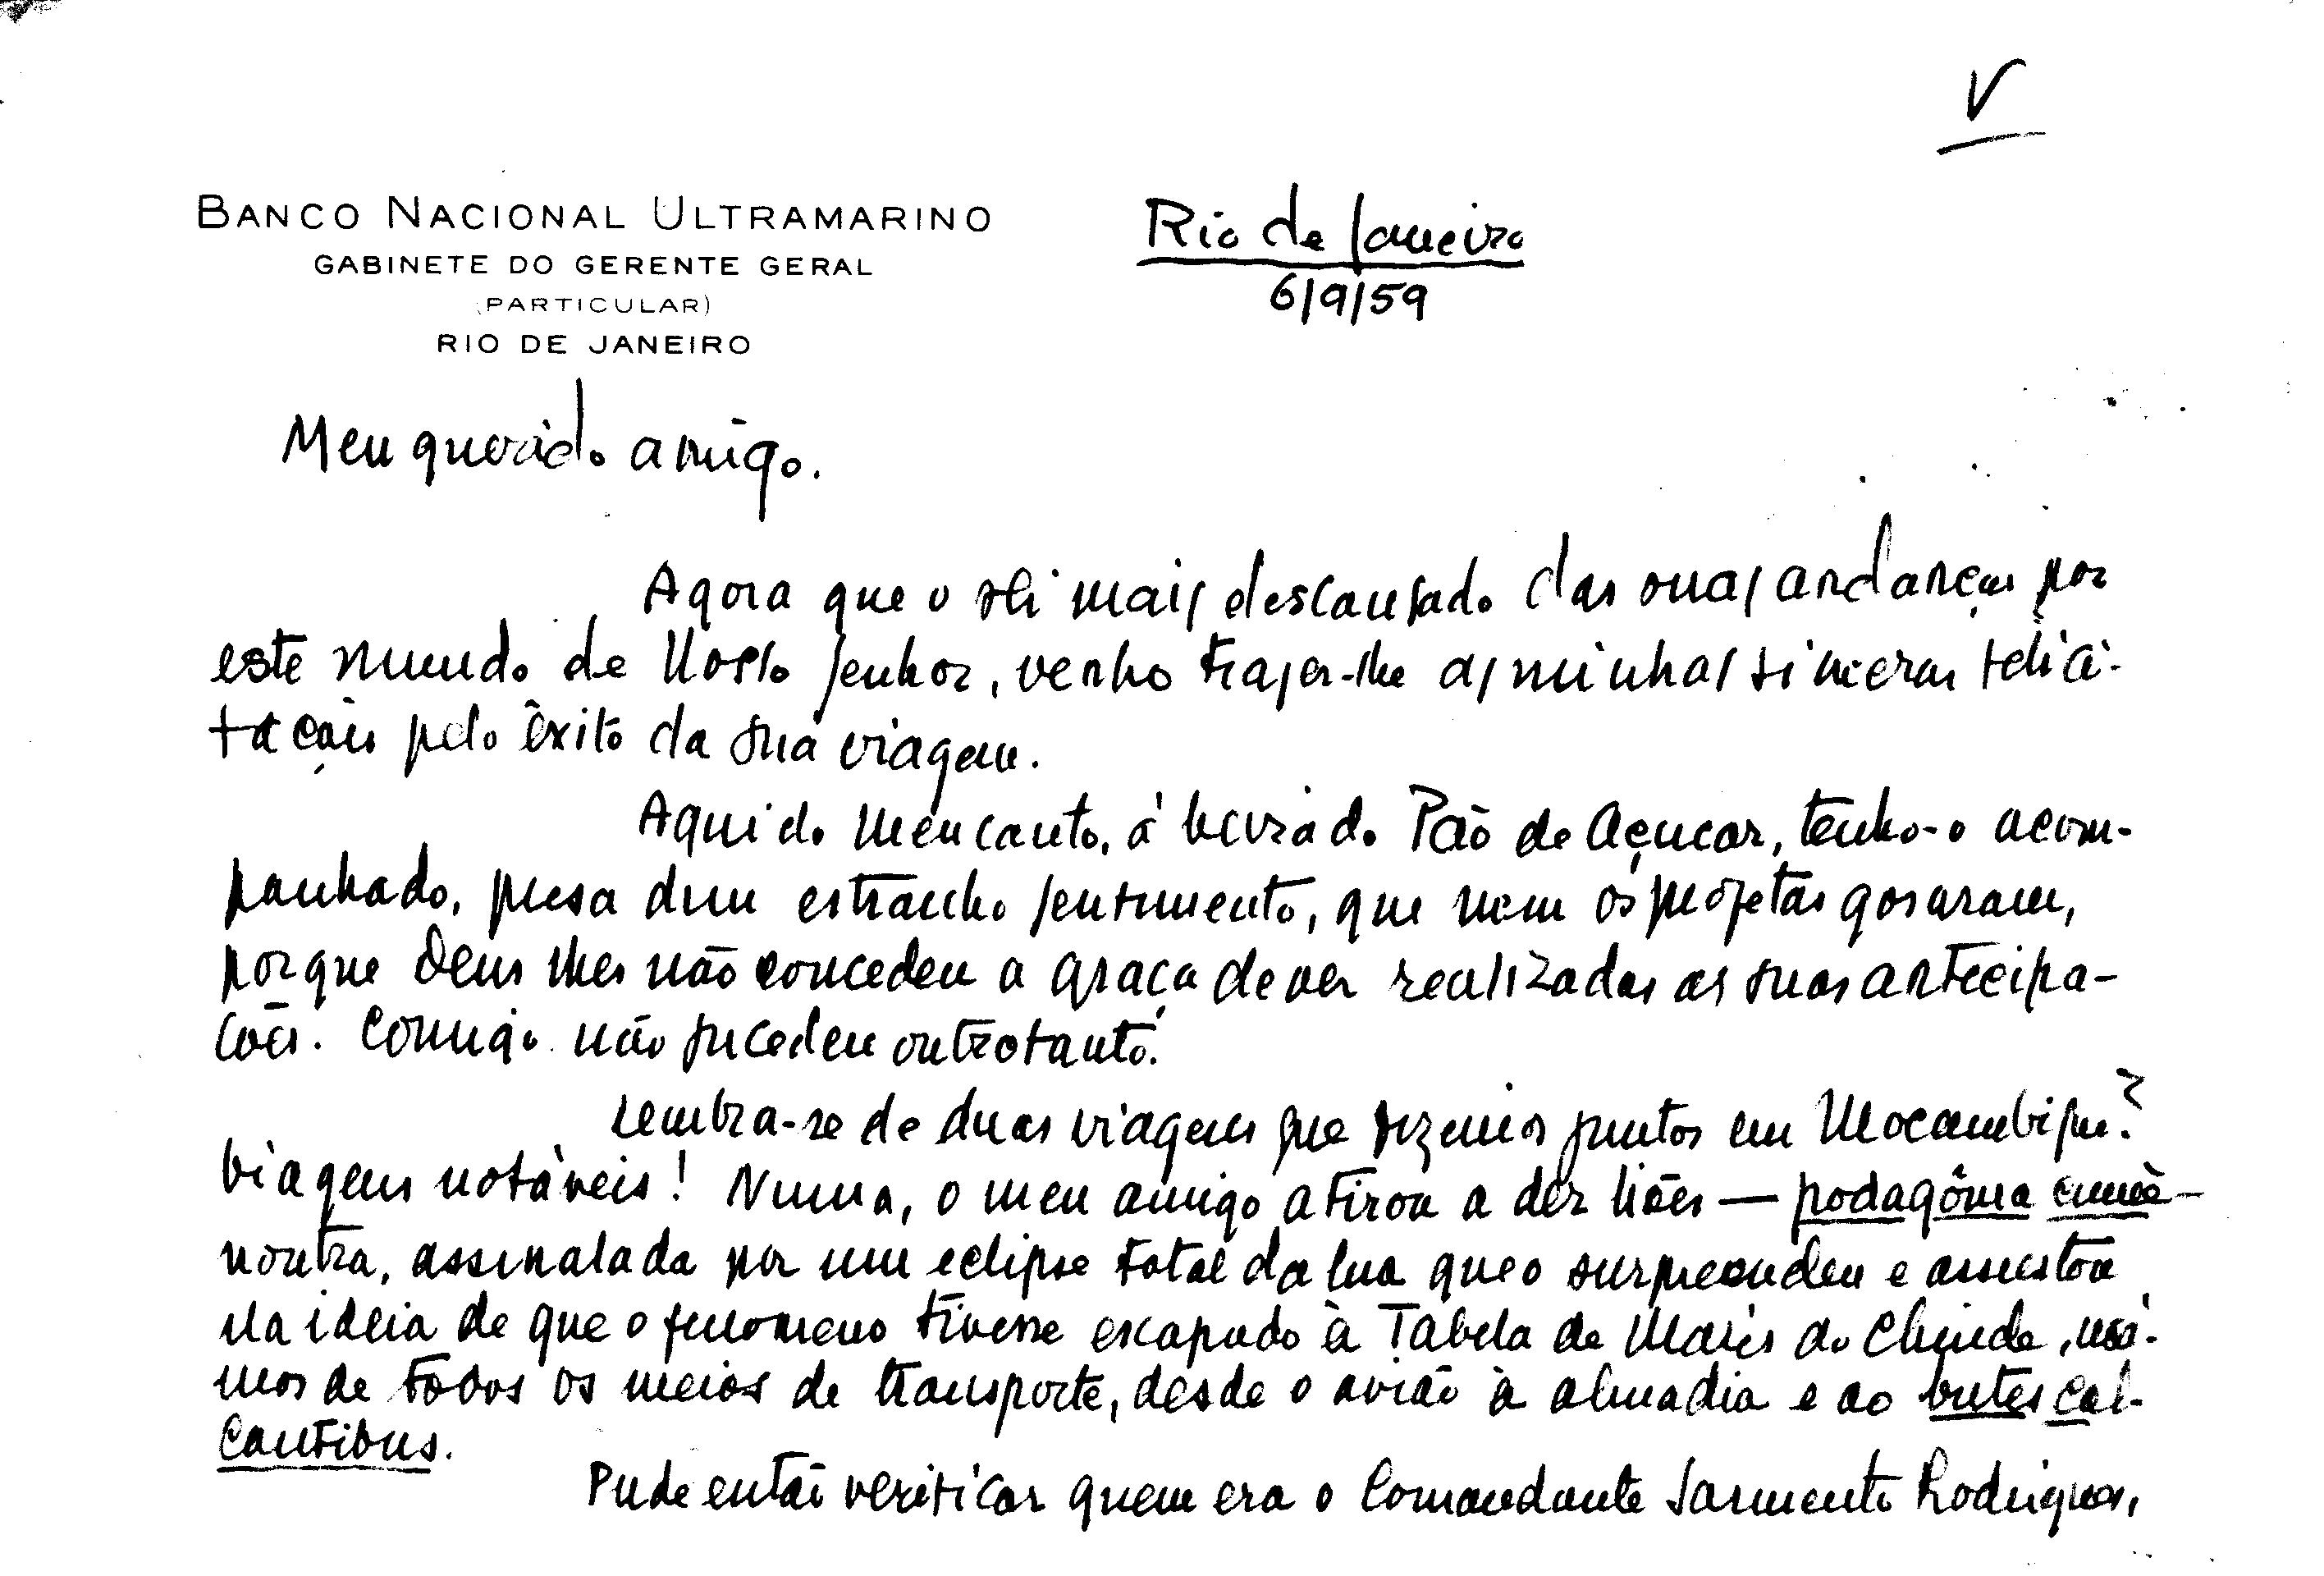 V
BANCO NACIONAL ULTRAMARINO
GABINETE DO GERENTE GERAL
(PARTICULAR)
RIO DE JANEIRO
Rio de Janeiro
6/9/59
Meu querido amigo.
Agora que o sei mais descansado das suas andanças por
este mundo de Nosso Senhor, venho trazer-lhe as minhas sinceras felici-
tações pelo êxito da sua viagem.
Aqui do meu canto, á beira do Pão de Açucar, tenho-o acom-
panhado, presa dum estranho sentimento, que nem os profetas gosaram,
porque Deus lhes não concedeu a graça de ver realizadas as suas antecipa-
ções. Comigo não sucedeu outrotanto.
Lembra-se de duas viagens que fizemos juntos em Moçambique?
Viagens notáveis! Numa, o meu amigo atirou a dez liões — podagôma
noutra, assinalada por um eclipse total da lua que o surpreendeu e assustou
na ideia de que o fenomeno tivesse escapado à Tabela de Marés do Chinde, usá-
mos de todos os meios de transporte, desde o avião à almadia e ao butes cal-
cantibus.
Pude então verificar quem era o Comandante Sarmento Rodrigues,